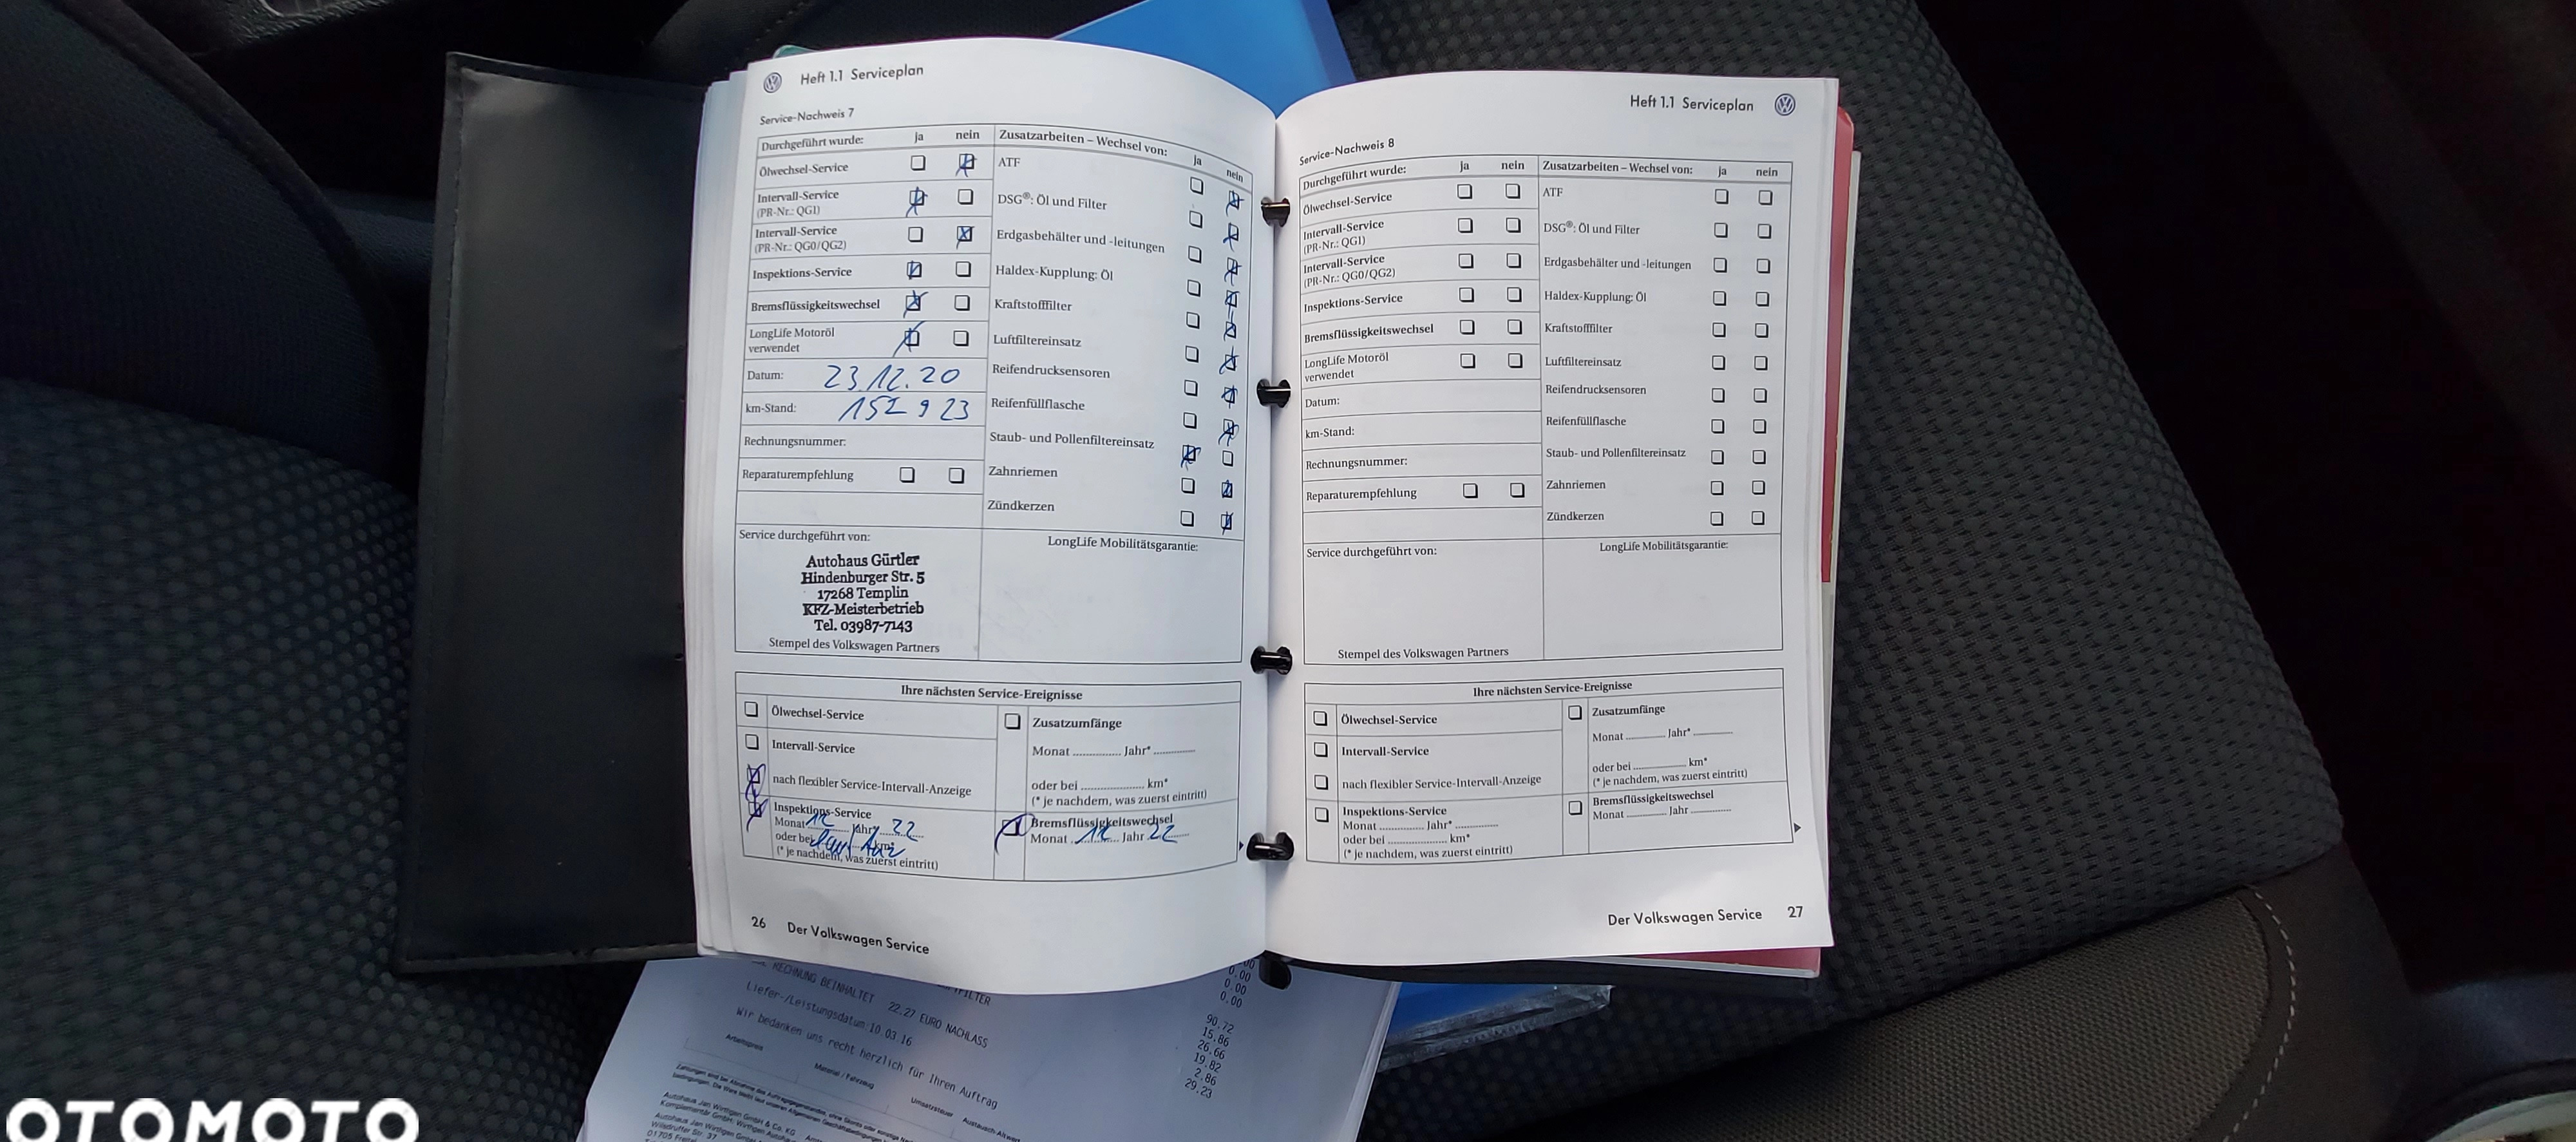 Heft 1.1 Serviceplan
Service-Nachweis 7
Durchgeführt wurde: ja nein Zusatzarbeiten – Wechsel von: ja nein
Ölwechsel-Service
ATF
Intervall-Service
(PR-Nr.: QG1)
DSG®: Öl und Filter
Intervall-Service
(PR-Nr.: QG0/QG2)
Erdgasbehälter und -leitungen
Inspektions-Service
Haldex-Kupplung: Öl
Bremsflüssigkeitswechsel
Kraftstofffilter
LongLife Motoröl
verwendet
Luftfiltereinsatz
Datum: 23.12.20
Reifendrucksensoren
km-Stand: 152 923
Reifenfüllflasche
Rechnungsnummer:
Staub- und Pollenfiltereinsatz
Reparaturempfehlung
Zahnriemen
Zündkerzen
Service durchgeführt von:
LongLife Mobilitätsgarantie:
Autohaus Gürtler
Hindenburger Str. 5
17268 Templin
KFZ-Meisterbetrieb
Tel. 03987-7143
Stempel des Volkswagen Partners
Ihre nächsten Service-Ereignisse
Ölwechsel-Service
Zusatzumfänge
Intervall-Service
Monat ............ Jahr* ............
nach flexibler Service-Intervall-Anzeige
oder bei .................. km*
(* je nachdem, was zuerst eintritt)
Inspektions-Service
Monat 12 Jahr* 22
oder bei km*
(* je nachdem, was zuerst eintritt)
Bremsflüssigkeitswechsel
Monat 12 Jahr 22
26 Der Volkswagen Service
Heft 1.1 Serviceplan
Service-Nachweis 8
Durchgeführt wurde: ja nein Zusatzarbeiten – Wechsel von: ja nein
Ölwechsel-Service
ATF
Intervall-Service
(PR-Nr.: QG1)
DSG®: Öl und Filter
Intervall-Service
(PR-Nr.: QG0/QG2)
Erdgasbehälter und -leitungen
Inspektions-Service
Haldex-Kupplung: Öl
Bremsflüssigkeitswechsel
Kraftstofffilter
LongLife Motoröl
verwendet
Luftfiltereinsatz
Datum:
Reifendrucksensoren
km-Stand:
Reifenfüllflasche
Rechnungsnummer:
Staub- und Pollenfiltereinsatz
Reparaturempfehlung
Zahnriemen
Zündkerzen
Service durchgeführt von:
LongLife Mobilitätsgarantie:
Stempel des Volkswagen Partners
Ihre nächsten Service-Ereignisse
Ölwechsel-Service
Zusatzumfänge
Intervall-Service
Monat ............ Jahr* ............
nach flexibler Service-Intervall-Anzeige
oder bei ................ km*
(* je nachdem, was zuerst eintritt)
Inspektions-Service
Monat ............ Jahr* ............
oder bei ................ km*
(* je nachdem, was zuerst eintritt)
Bremsflüssigkeitswechsel
Monat ............ Jahr ............
Der Volkswagen Service 27
0.00
0.00
0.00
RECHNUNG BEINHALTET 22.27 EURO NACHLASS
Liefer-/Leistungsdatum 10.03.16
Wir bedanken uns recht herzlich für Ihren Auftrag
90.72
15.86
26.66
19.82
2.86
29.23
Arbeitspreis Material / Fahrzeug Umsatzsteuer
Autohaus Jan Wirthgen GmbH & Co. KG
Wilsdruffer Str. 37
OTOMOTO